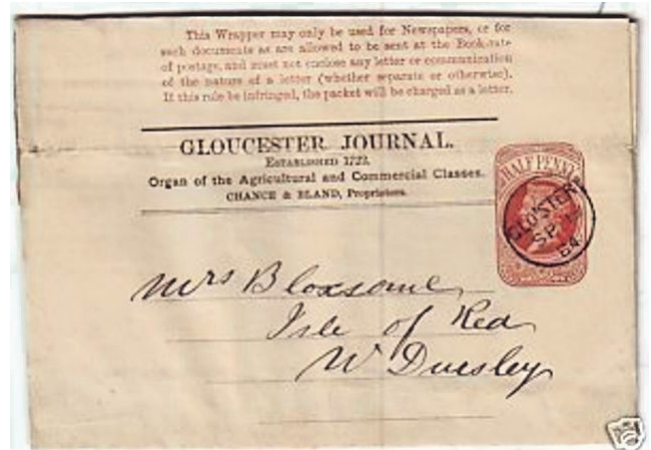 This Wrapper may only be used for Newspapers, or for
such documents as are allowed to be sent at the Book-rate
of postage, and must not enclose any letter or communication
of the nature of a letter (whether separate or otherwise).
If this rule be infringed, the packet will be charged as a letter.
GLOUCESTER JOURNAL.
ESTABLISHED 1722.
Organ of the Agricultural and Commercial Classes.
CHANCE & BLAND, Proprietors.
HALFPENNY
GLOSTER
SP
84
Mrs Bloxsome
Isle of Rea
W Dursley